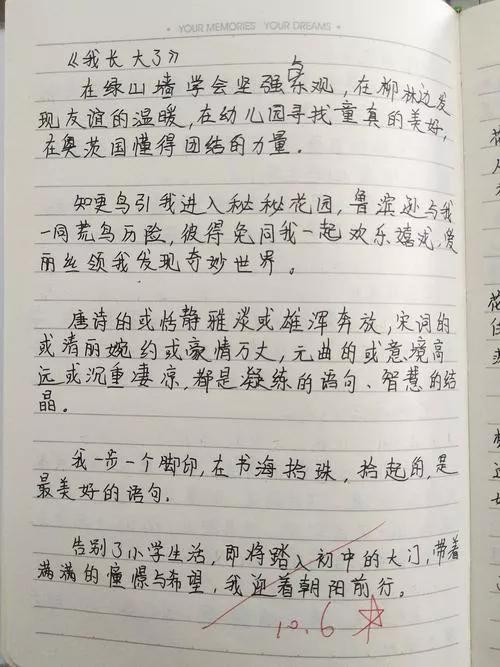 YOUR MEMORIES YOUR DREAMS
《我长大了》
在绿山墙学会坚强与乐观，在柳林边发
现友谊的温暖，在幼儿园寻找童真的美好，
在奥茨国懂得团结的力量。
知更鸟引我进入秘秘花园，鲁滨逊与我
一同荒鸟历险，彼得兔同我一起欢乐嬉戏，爱
丽丝领我发现奇妙世界。
唐诗的或恬静雅淡或雄浑奔放，宋词的
或清丽婉约或豪情万丈，元曲的或意境高
远或沉重凄凉，都是凝练的语句、智慧的结
晶。
我一步一个脚印，在书海拾珠，拾起的，是
最美好的语句。
告别了小学生活，即将踏入初中的大门，带着
满满的憧憬与希望，我迎着朝阳前行。
10.6